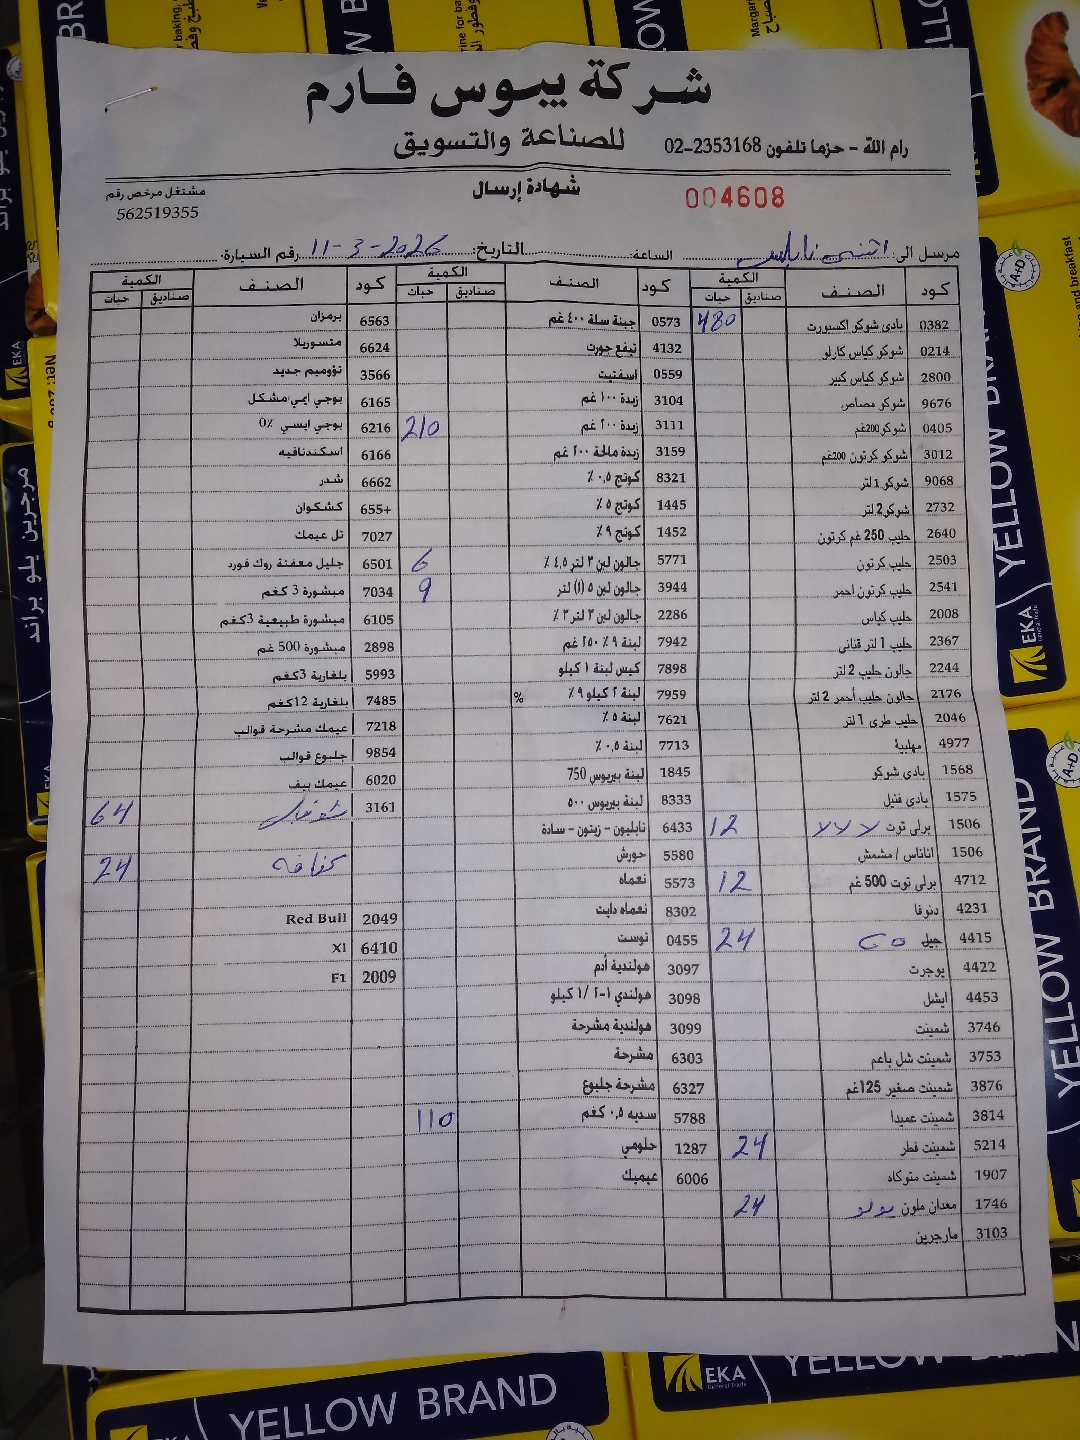 شركة يبوس فارم
للصناعة والتسويق
رام الله - حزما تلفون 02-2353168
مشتغل مرخص رقم
562519355
شهادة إرسال
004608
مرسل الى: نابلس الساعة: التاريخ: 11-3-2026 رقم السيارة:
كود الصنف الكمية صناديق حبات
0382 يادي شوكو اكسبورت 480
0214 شوكو كياس كارلو
2800 شوكو كياس كبير
9676 شوكو مصاص
0405 شوكو 200غم
3012 شوكو كرتون 200غم
9068 شوكو 1 لتر
2732 شوكو 2 لتر
2640 حليب 250 غم كرتون
2503 حليب كرتون
2541 حليب كرتون احمر
2008 حليب كياس
2367 حليب 1 لتر قناني
2244 جالون حليب 2 لتر
2176 جالون حليب أحمر 2 لتر
2046 حليب طري 1 لتر
4977 مهلبية
1568 يادي شوكو
1575 يادي فنيل
1506 برلي توت 12
1506 اناناس / مشمش
4712 برلي توت 500 غم 12
4231 دنوفا
4415 جيل GO 24
4422 يوجرت
4453 ايشل
3746 شمينت
3753 شمينت شل باعم
3876 شمينت صغير 125غم
3814 شمينت عميدا
5214 شمينت فطر 24
1907 شمينت متوكاه
1746 معدان ملون يولو 24
3103 مارجرين
كود الصنف الكمية صناديق حبات
0573 جبنة سلة ٤٠٠ غم
4132 تيفع جورت
0559 اسفتيت
3104 زبدة ١٠٠ غم
3111 زبدة ٢٠٠ غم 210
3159 زبدة مالحة ٢٠٠ غم
8321 كوتج ٠,٥ ٪
1445 كوتج ٥ ٪
1452 كوتج ٩ ٪
5771 جالون لبن ٣ لتر ٤,٥ ٪ 6
3944 جالون لبن ٥ (١) لتر 9
2286 جالون لبن ٣ لتر ٣ ٪
7942 لبنة ٩ ٪ ٢٥٠ غم
7898 كيس لبنة ١ كيلو
7959 لبنة ٢ كيلو ٩ ٪ %
7621 لبنة ٥ ٪
7713 لبنة ٠,٥ ٪
1845 لبنة بيريوس 750
8333 لبنة بيريوس ٥٠٠
6433 نابليون - زيتون - سادة
5580 حورش
5573 نعماه
8302 نعماه دايت
0455 توست
3097 هولندية أدم
3098 هولندي ١-٢ / ١ كيلو
3099 هولندية مشرحة
6303 مشرحة
6327 مشرحة جلبوع
5788 سديه ٠,٥ كغم 110
1287 حلومي
6006 عيميك
كود الصنف الكمية صناديق حبات
6563 برمزان
6624 متسوريلا
3566 نؤوميم جديد
6165 يوجي ايمي/مشكل
6216 يوجي ايسي ٪0
6166 اسكندنافيه
6662 شدر
655+ كشكوان
7027 تل عيمك
6501 جليل معفنة روك فورد
7034 مبشورة 3 كغم
6105 مبشورة طبيعية 3كغم
2898 مبشورة 500 غم
5993 بلغارية 3كغم
7485 بلغارية 12كغم
7218 عيمك مشرحة قوالب
9854 جلبوع قوالب
6020 عيمك بيف
3161 64
كنافه 24
2049 Red Bull
6410 Xl
2009 F1
YELLOW BRAND
مرجرين يلو براند
EKA
General Trade
A+D
and breakfast